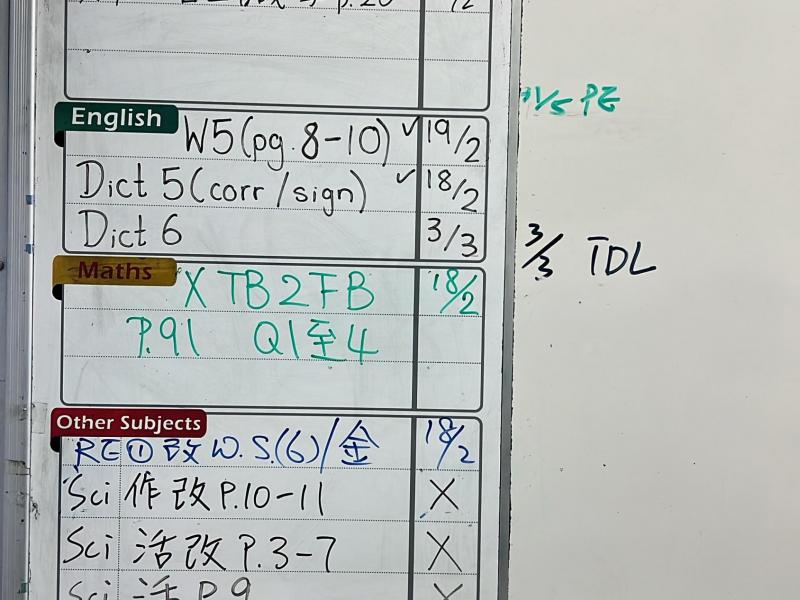 P.20
English
W5(pg.8-10) ✓ 19/2
Dict 5(corr/sign) ✓ 18/2
Dict 6 3/3
3/3 TDL
Maths
X TB2FB 18/2
P.91 Q1至4
Other Subjects
RE①改W.S.(6)/金 18/2
Sci 作改P.10-11 X
Sci 活改P.3-7 X
Sci 活P.9
/5 PE